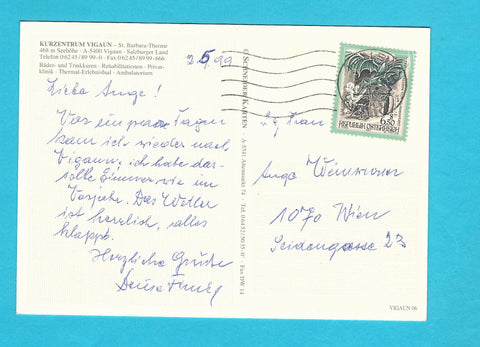 KURZENTRUM VIGAUN – St. Barbara-Therme
468 m Seehöhe · A-5400 Vigaun · Salzburger Land
Telefon 0 62 45 / 89 99-0 · Fax 0 62 45 / 89 99-666
Bäder- und Trinkkuren · Rehabilitationen · Privat-
klinik · Thermal-Erlebnisbad · Ambulatorium
2.5.99
Liebe Inge!
Vor ein paar Tagen
kam ich wieder nach
Vigaun, ich habe das-
selbe Zimmer wie im
Vorjahr. Das Wetter
ist herrlich, alles
klappt.
Herzliche Grüße
© SCHNEIDER KARTEN
VIGAUN 06
6.50
REPUBLIK ÖSTERREICH
Frau
1070 Wien
Seidengasse 23